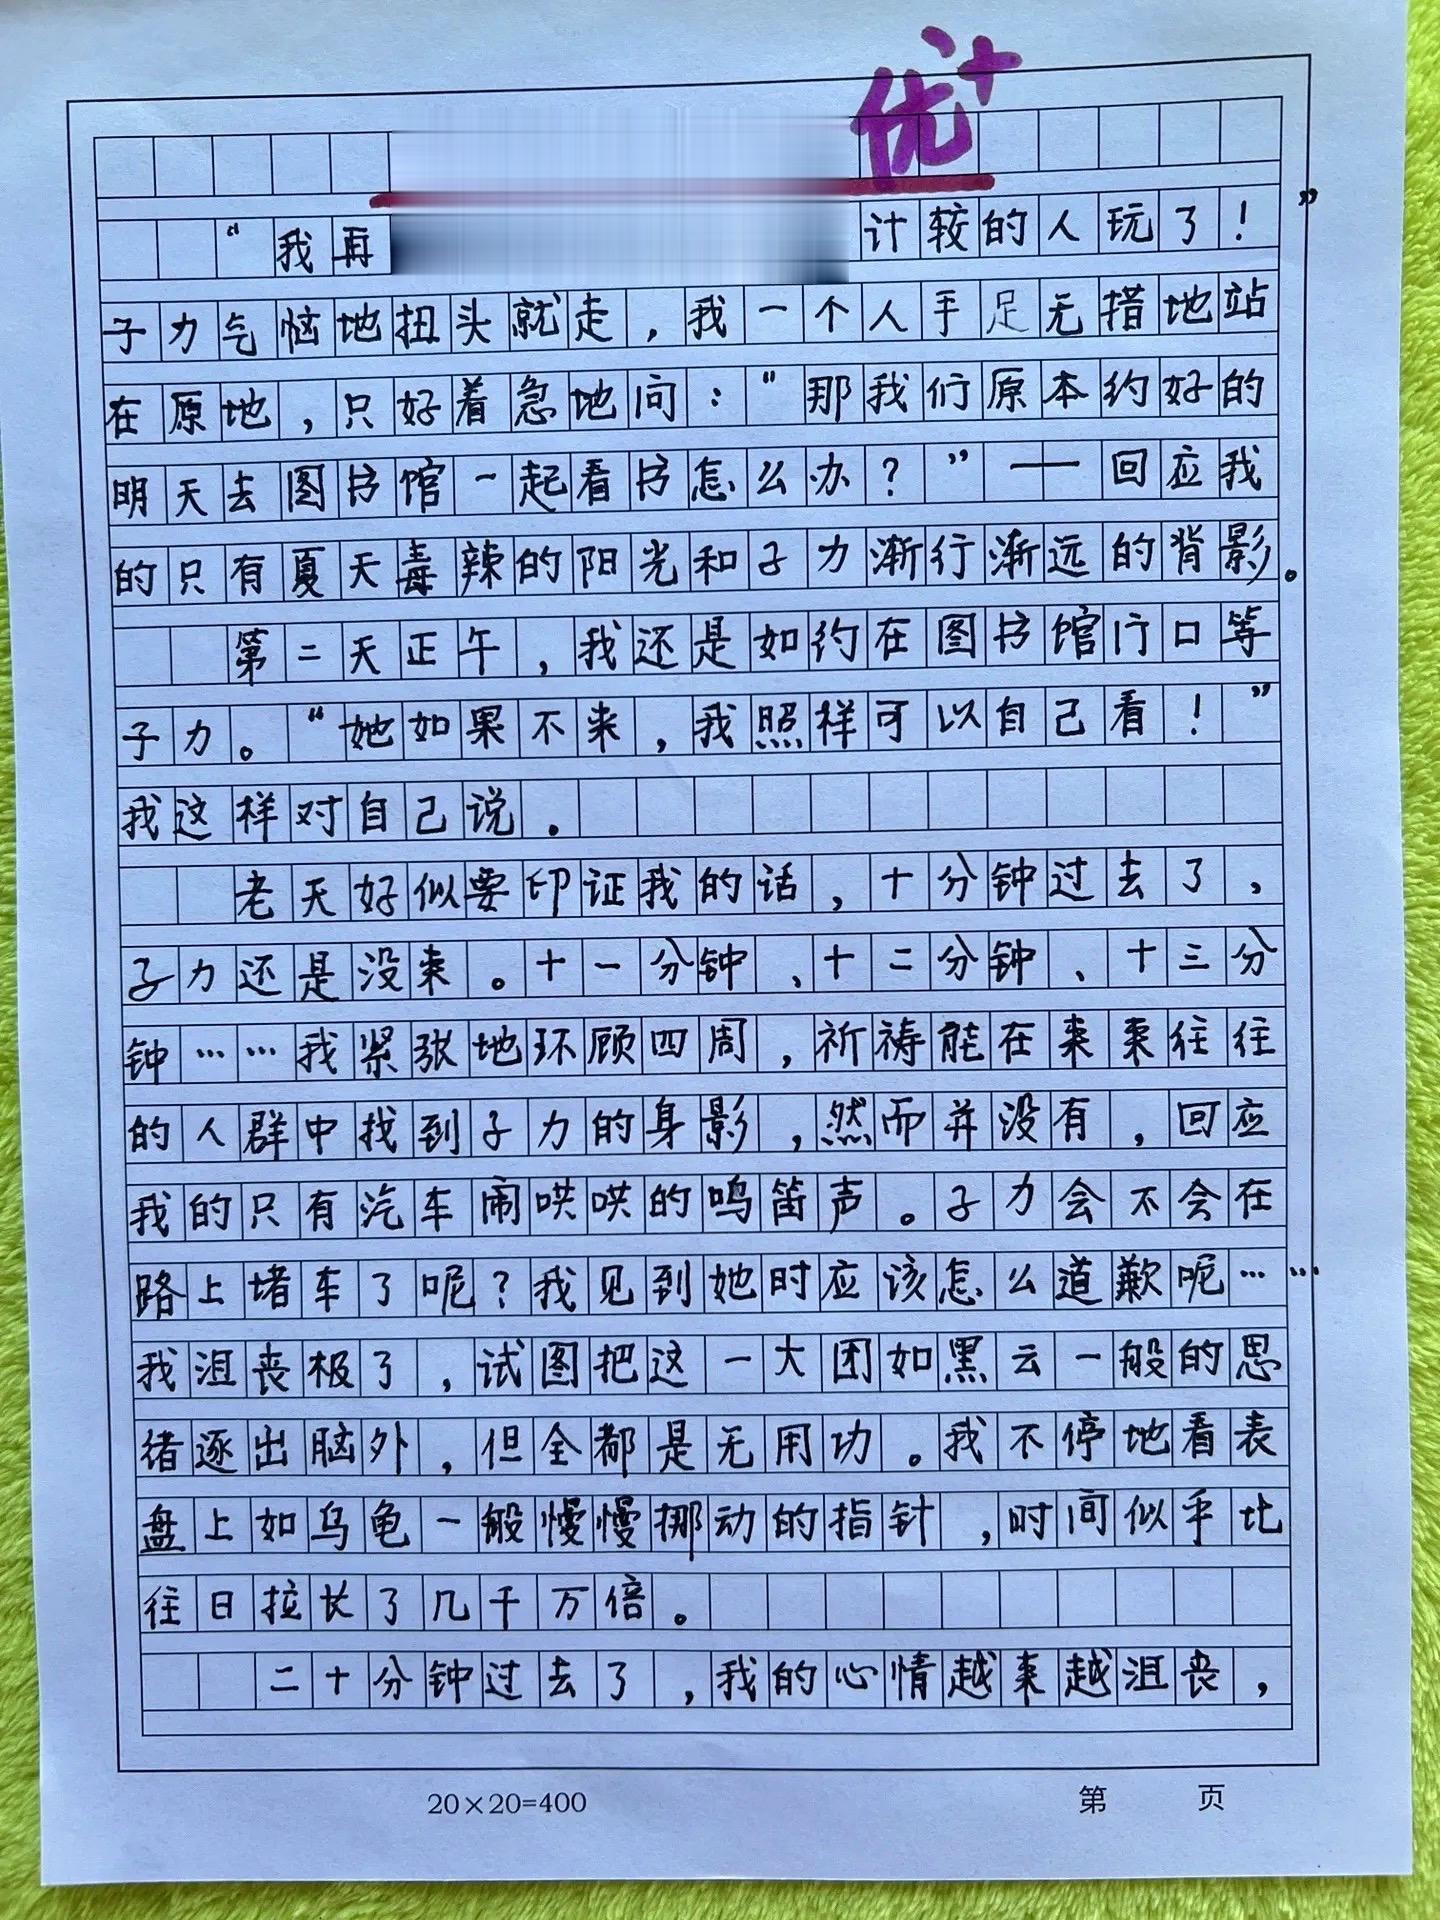 优+
“我再 计较的人玩了！”
子力气恼地扭头就走，我一个人手足无措地站
在原地，只好着急地问：“那我们原本约好的
明天去图书馆一起看书怎么办？”——回应我
的只有夏天毒辣的阳光和子力渐行渐远的背影。
第二天正午，我还是如约在图书馆门口等
子力。“她如果不来，我照样可以自己看！”
我这样对自己说。
老天好似要印证我的话，十分钟过去了，
子力还是没来。十一分钟、十二分钟、十三分
钟……我紧张地环顾四周，祈祷能在来来往往
的人群中找到子力的身影，然而并没有，回应
我的只有汽车闹哄哄的鸣笛声。子力会不会在
路上堵车了呢？我见到她时应该怎么道歉呢……
我沮丧极了，试图把这一大团如黑云一般的思
绪逐出脑外，但全都是无用功。我不停地看表
盘上如乌龟一般慢慢挪动的指针，时间似乎比
往日拉长了几千万倍。
二十分钟过去了，我的心情越来越沮丧，
20×20=400
第 页